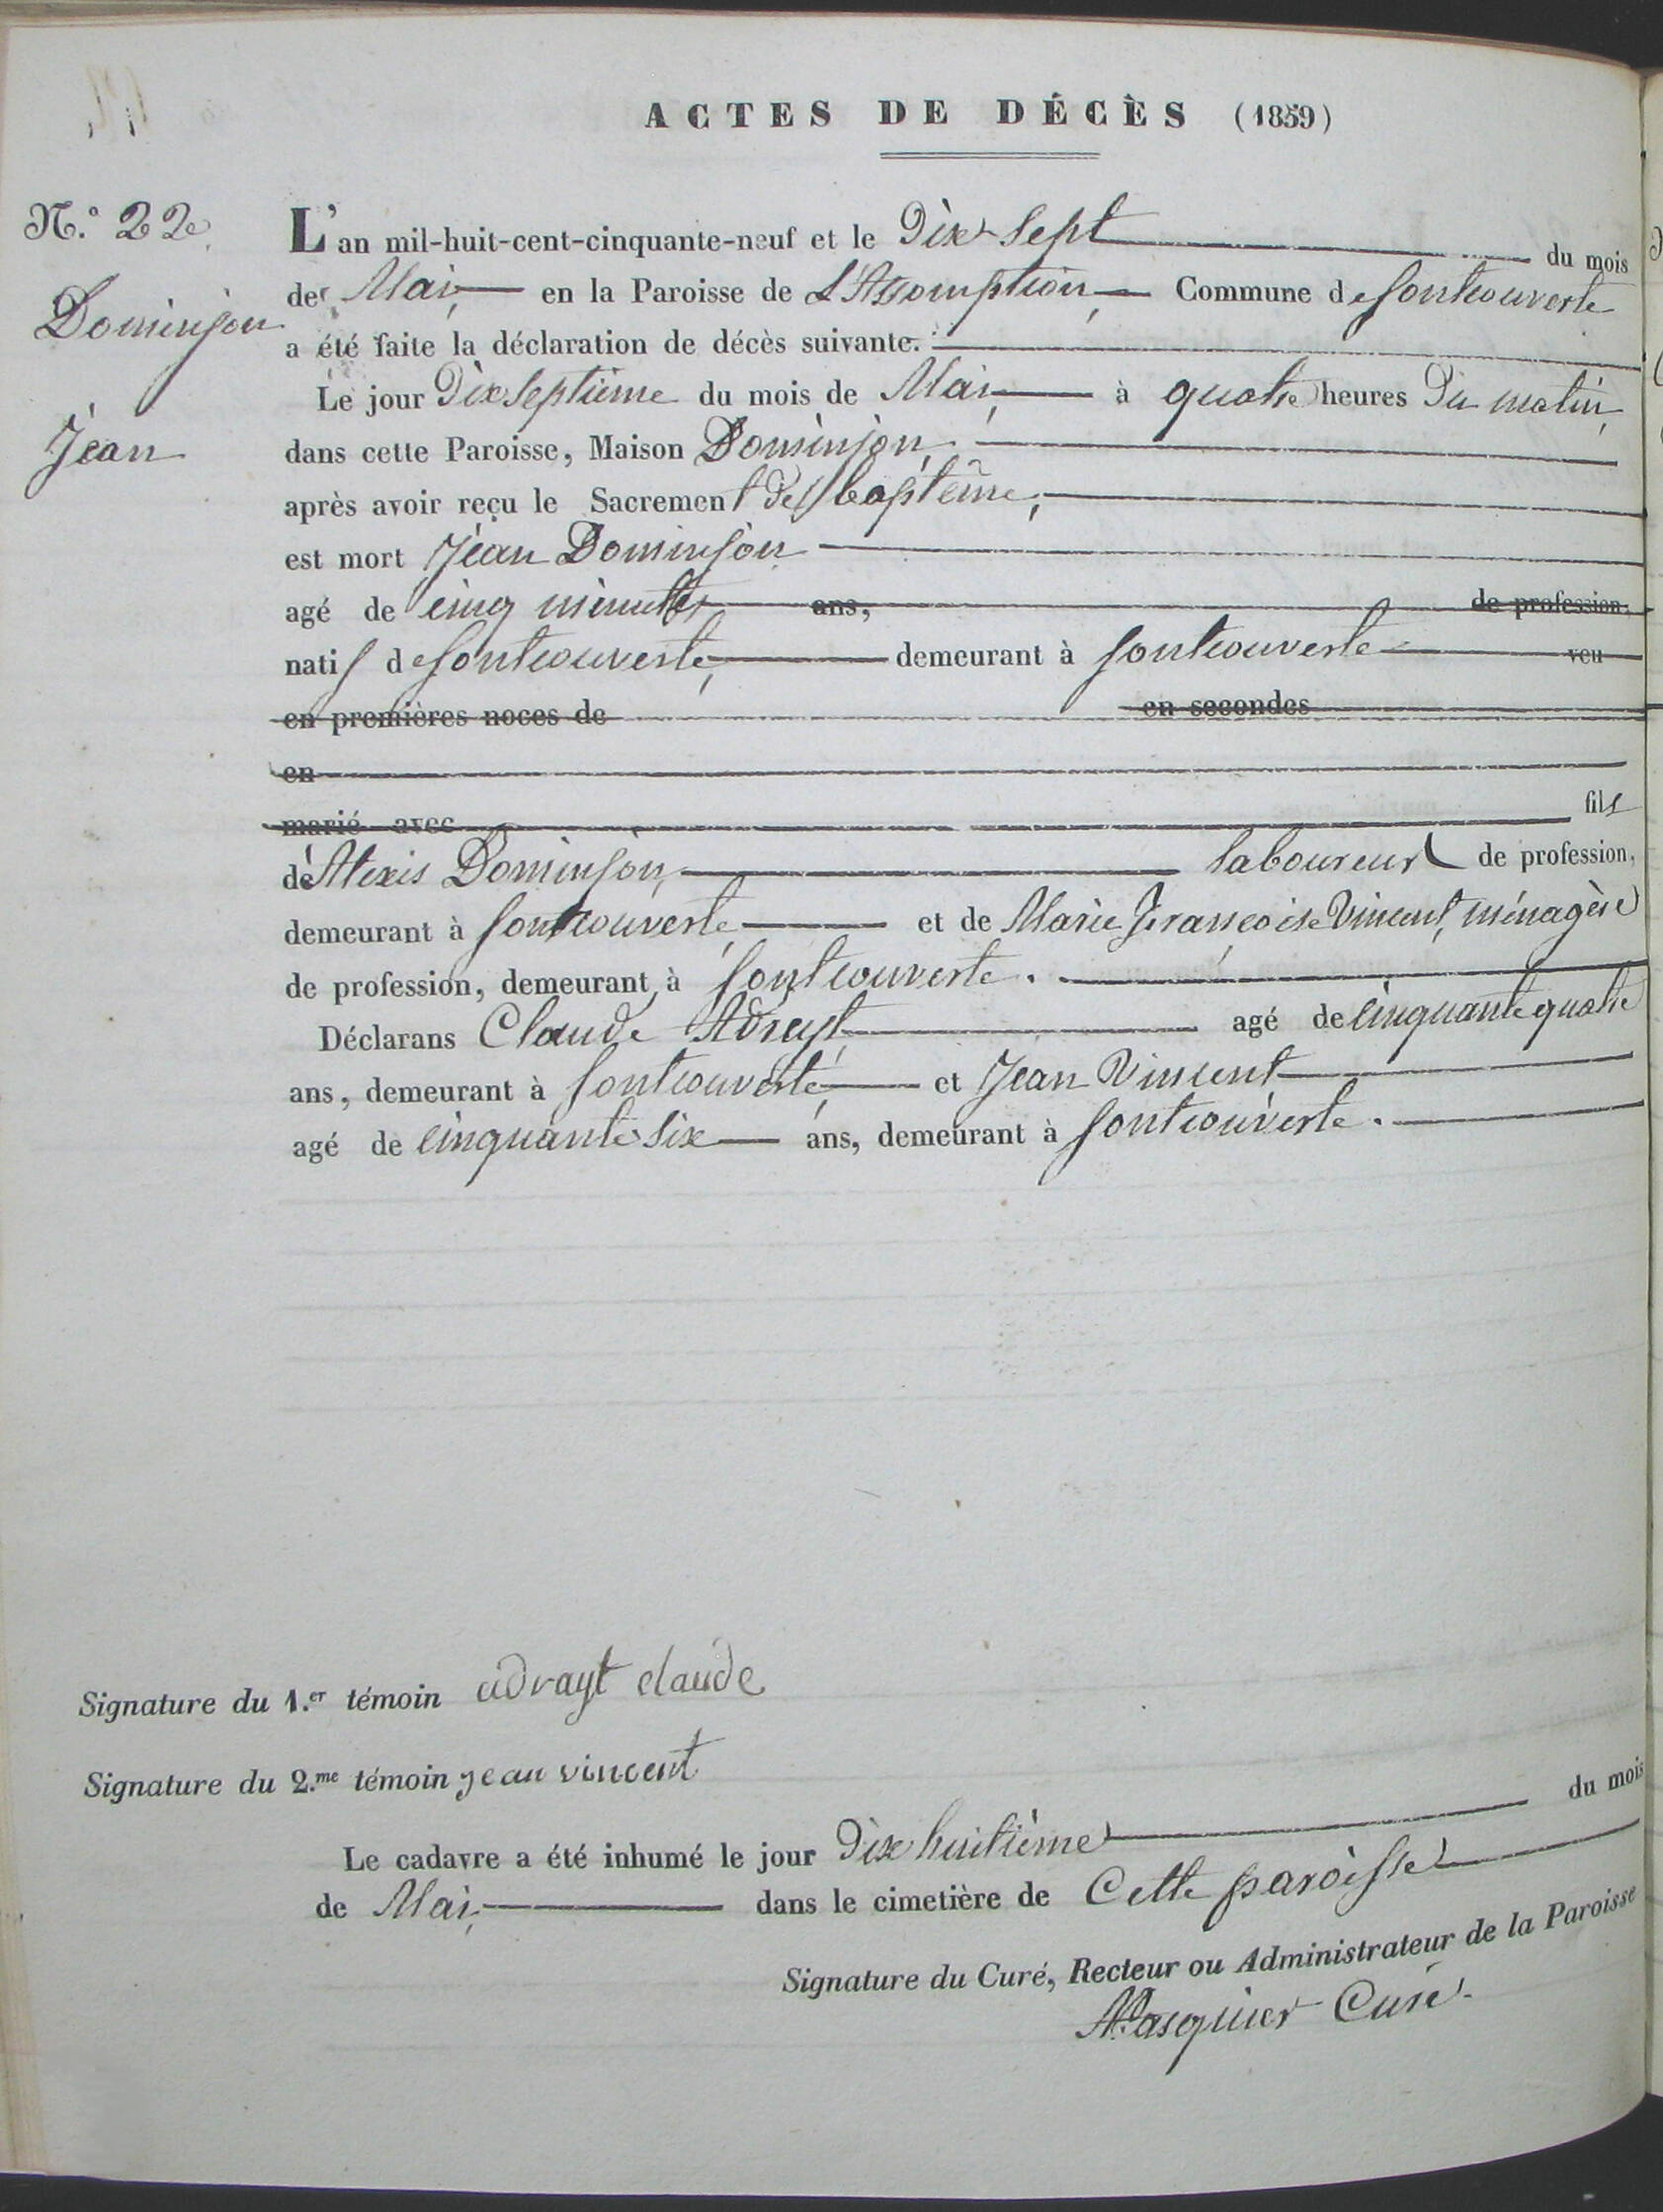 ACTES DE DÉCÈS (1859)
N.° 22
Dominjon
Jean
L'an mil-huit-cent-cinquante-neuf et le Dix Sept du mois
de Mai, en la Paroisse de L'Assomption, Commune de fontcouverte
a été faite la déclaration de décès suivante.
Le jour Dix Septième du mois de Mai, à quatre heures Du matin,
dans cette Paroisse, Maison Dominjon,
après avoir reçu le Sacrement de baptême,
est mort Jean Dominjon
agé de cinq minutes ans, de profession,
natif de fontcouverte, demeurant à fontcouverte veu
en premières noces de en secondes
en
marié avec fils
d'Alexis Dominjon, laboureur de profession,
demeurant à fontcouverte, et de Marie Françoise Vincent, ménagère
de profession, demeurant à fontcouverte.
Déclarans Claude Adrayt agé de cinquante quatre
ans, demeurant à fontcouverte, et Jean Vincent
agé de cinquante six ans, demeurant à fontcouverte.
Signature du 1.er témoin adrayt claude
Signature du 2.me témoin jean vincent
Le cadavre a été inhumé le jour Dix huitième du mois
de Mai, dans le cimetière de Cette paroisse
Signature du Curé, Recteur ou Administrateur de la Paroisse
Pasquier Curé.